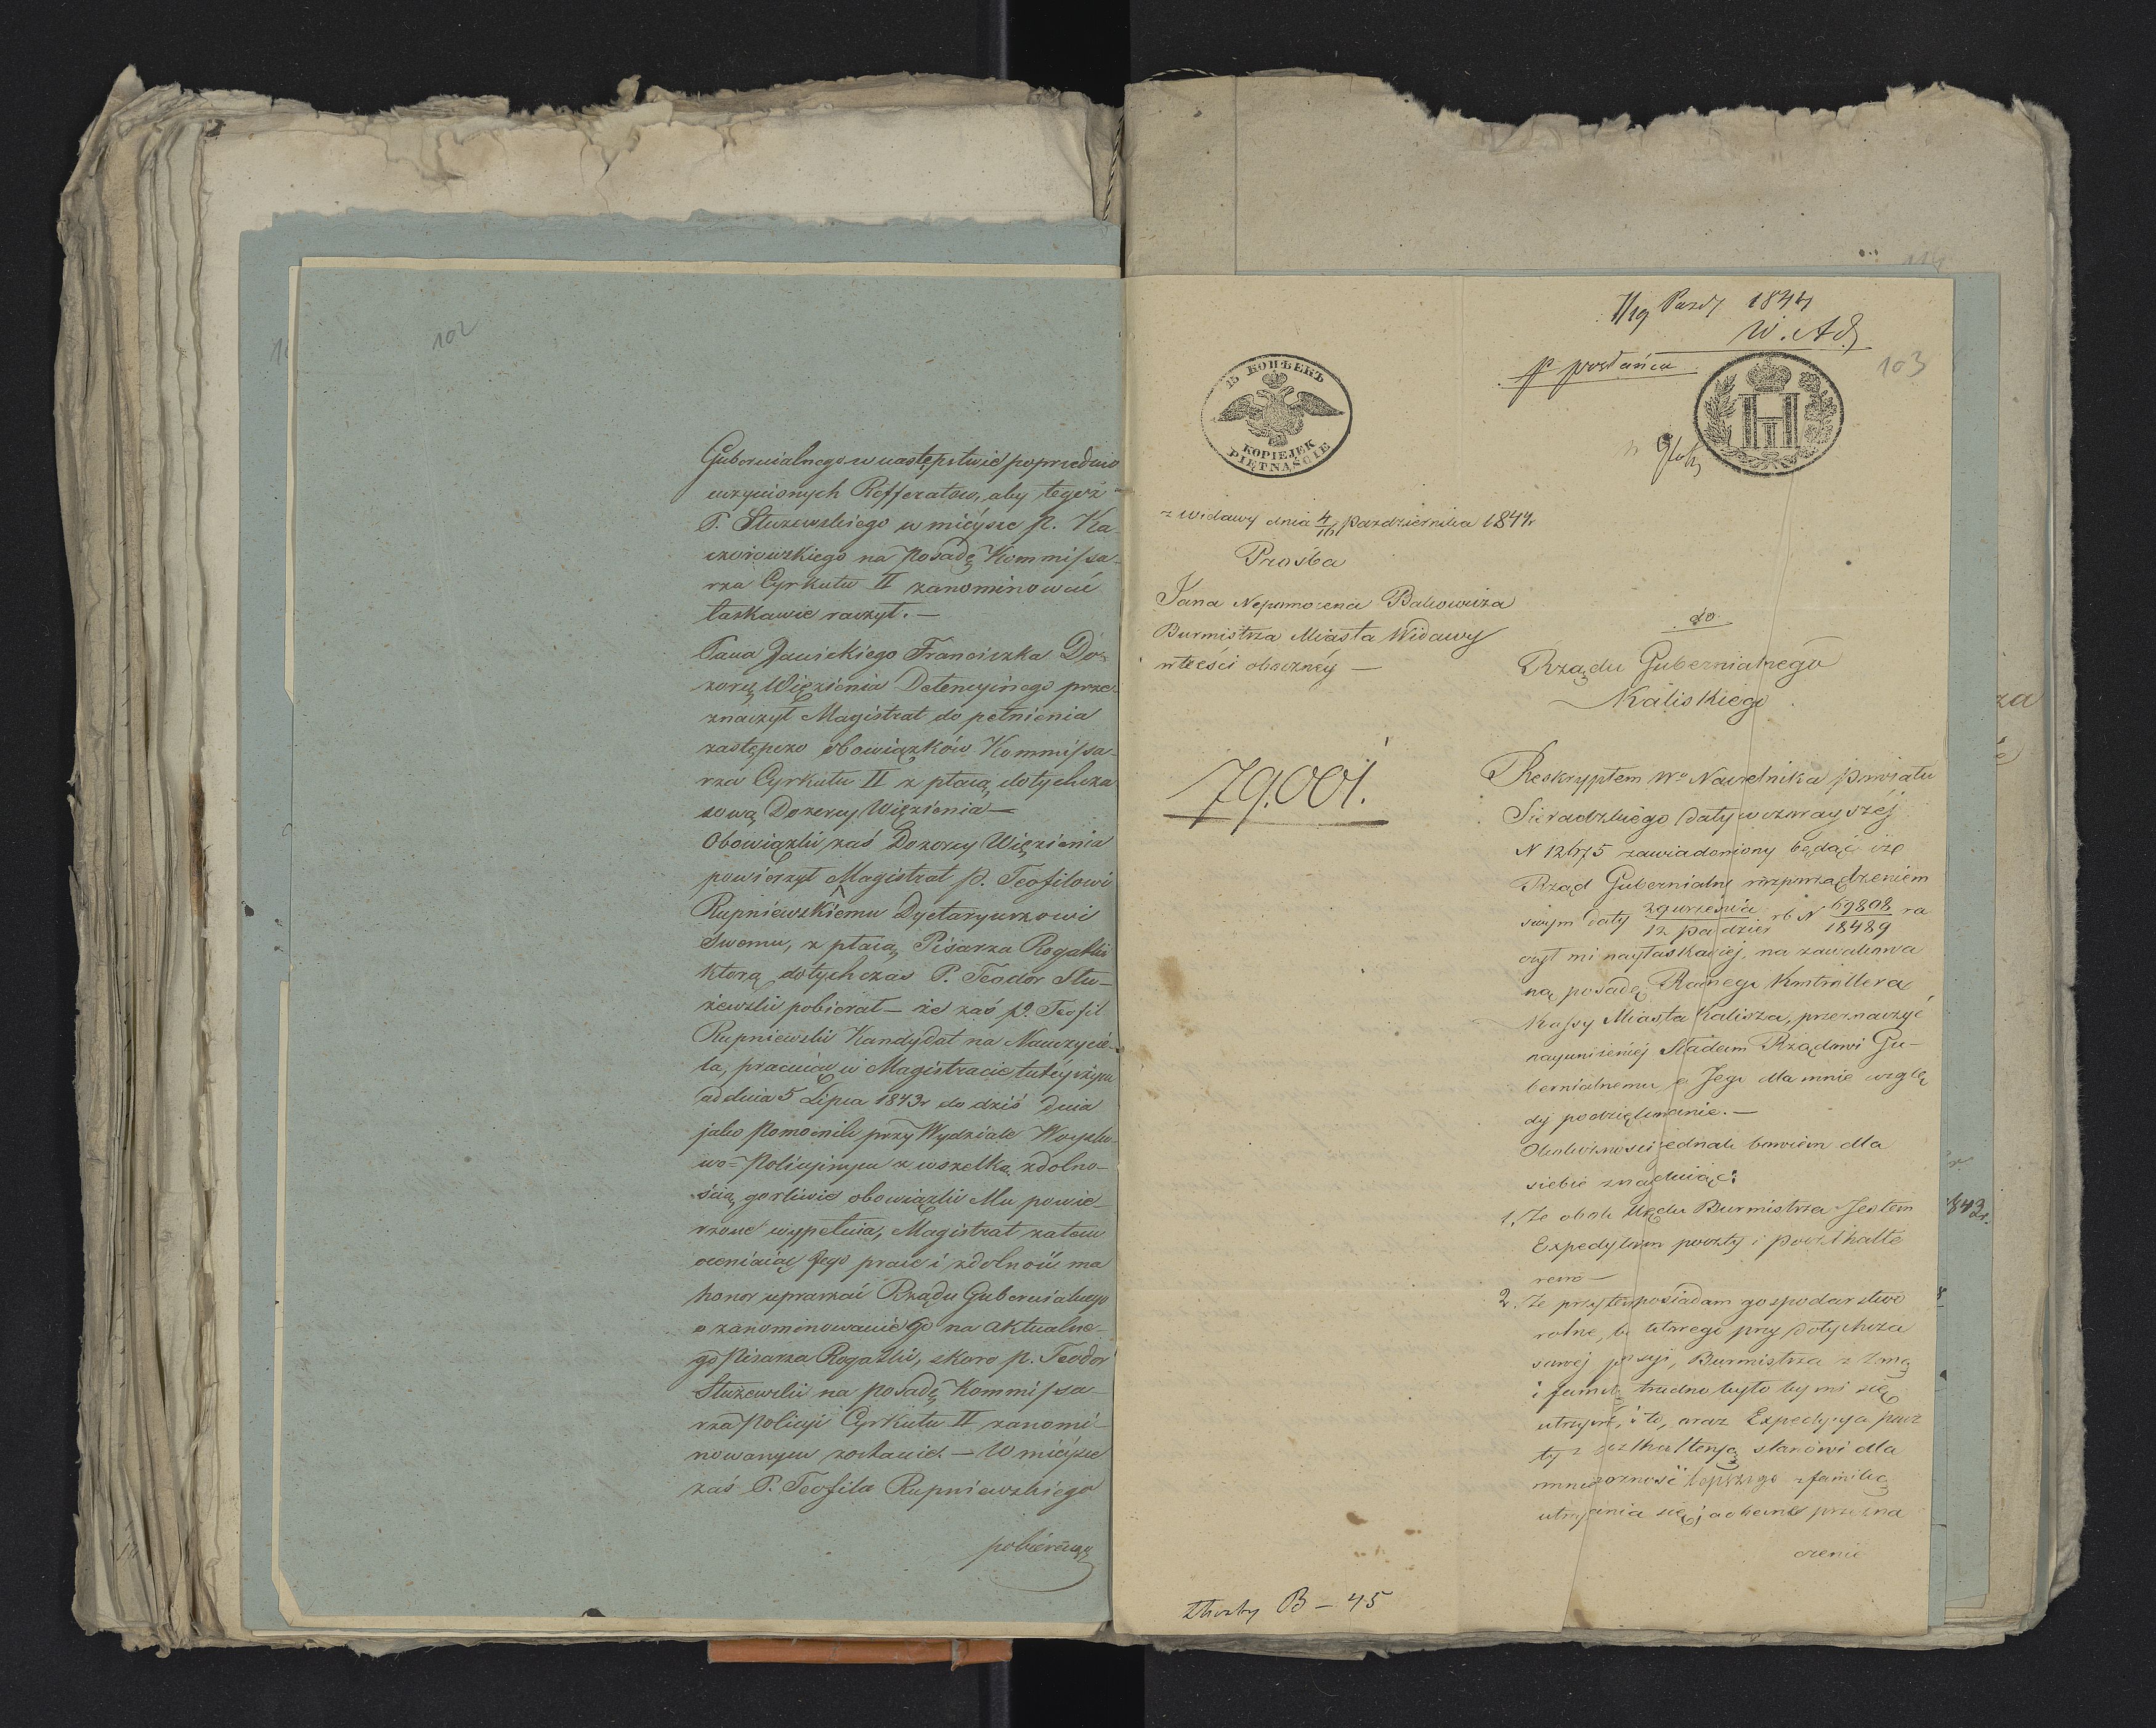 102
Gubernialnego w następstwie poprzednio
uczynionych Refferatow, aby tegoż
P. Stużewskiego w mieysce p. Ka-
czorowskiego na Posadę Kommissa-
rza Cyrkułu II zanominować
łaskawie raczył. —
Pana Janickiego Franciszka Do-
zorcę Więzienia Detencyinego prze-
znaczył Magistrat do pełnienia
zastępczo obowiązków Kommissa-
rza Cyrkułu II z płacą dotychcza
sową Dozorcy Więzienia —
Obowiązki zaś Dozorcy Więzienia
powierzył Magistrat p. Teofilowi
Rupniewskiemu Dyetaryuszowi
Swemu, z płacą Pisarza Rogatki
którą dotychczas P. Teodor Stu-
żewski pobierał — że zaś p. Teofil
Rupniewski Kandydat na Nauczycie-
la, pracuiąc w Magistracie tuteyszym
od dnia 5 Lipca 1843r do dziś dnia
jako Pomocnik przy Wydziale Woysko-
wo=Policyinym z wszelką zdolno-
ścią gorliwie obowiązki Mu powie-
rzone wypełnia, Magistrat zatem
oceniaiąc Jego pracę i zdolność ma
honor upraszać Rządu Gubernialnego
o zanominowanie Go na aktualne-
go Pisarza Rogatki, skoro p. Teodor
Stużewski na posadę Kommissa-
rza Policyi Cyrkułu II zanomi-
nowanym zostanie. — W mieysce
zaś P. Teofila Rupniewskiego
pobieraiący
7/19 Pazdz 1844
W. Ad
p posłańca
103
15 КОПѢЕКЪ
KOPIEJEK
PIĘTNAŚCIE
z Widawy dnia 4/16 Października 1844r
Prośba
Jana Nepomocena Bakowicza
Burmistrza Miasta Widawy
w treści obaczney —
do
Rządu Gubernialnego
Kaliskiego
79.001.
Reskryptem Wo Naczelnika powiatu
Sieradzkiego daty wczorayszéj
N 12675 zawiadomiony będąc iże
Rząd Gubernialny rozporządzeniem
swym daty 29 września/12 pazdzier rb N 69808/18489 ra
czył mi nayłaskawiej, na zawakowa
ną posadę Radnego Kontrollera
Kassy Miasta Kalisza, przeznaczyć
nayuniżeniej Składam Rządowi Gu-
bernialnemu za Jego dla mnie wzglę
dy podziękowanie. —
Okoliczności jednak bowiem dla
siebie znayduiąc:
1. Że obok Urzędu Burmistrza Jestem
Expedytorem poczty i poczthalte
rem —
2. Że przytem posiadam gospodarstwo
rolne, bez którego przy dotychcza
sowéj pensyi, Burmistrza z żoną
i familią trudno byłoby mi się
utrzymać, i to, oraz Expedycya pocz
ty z poczthalteryą stanowi dla
mnie możność lepszego z familią
utrzymania się, jak obecne przezna
czenie
Liczby B — 45
1843r.